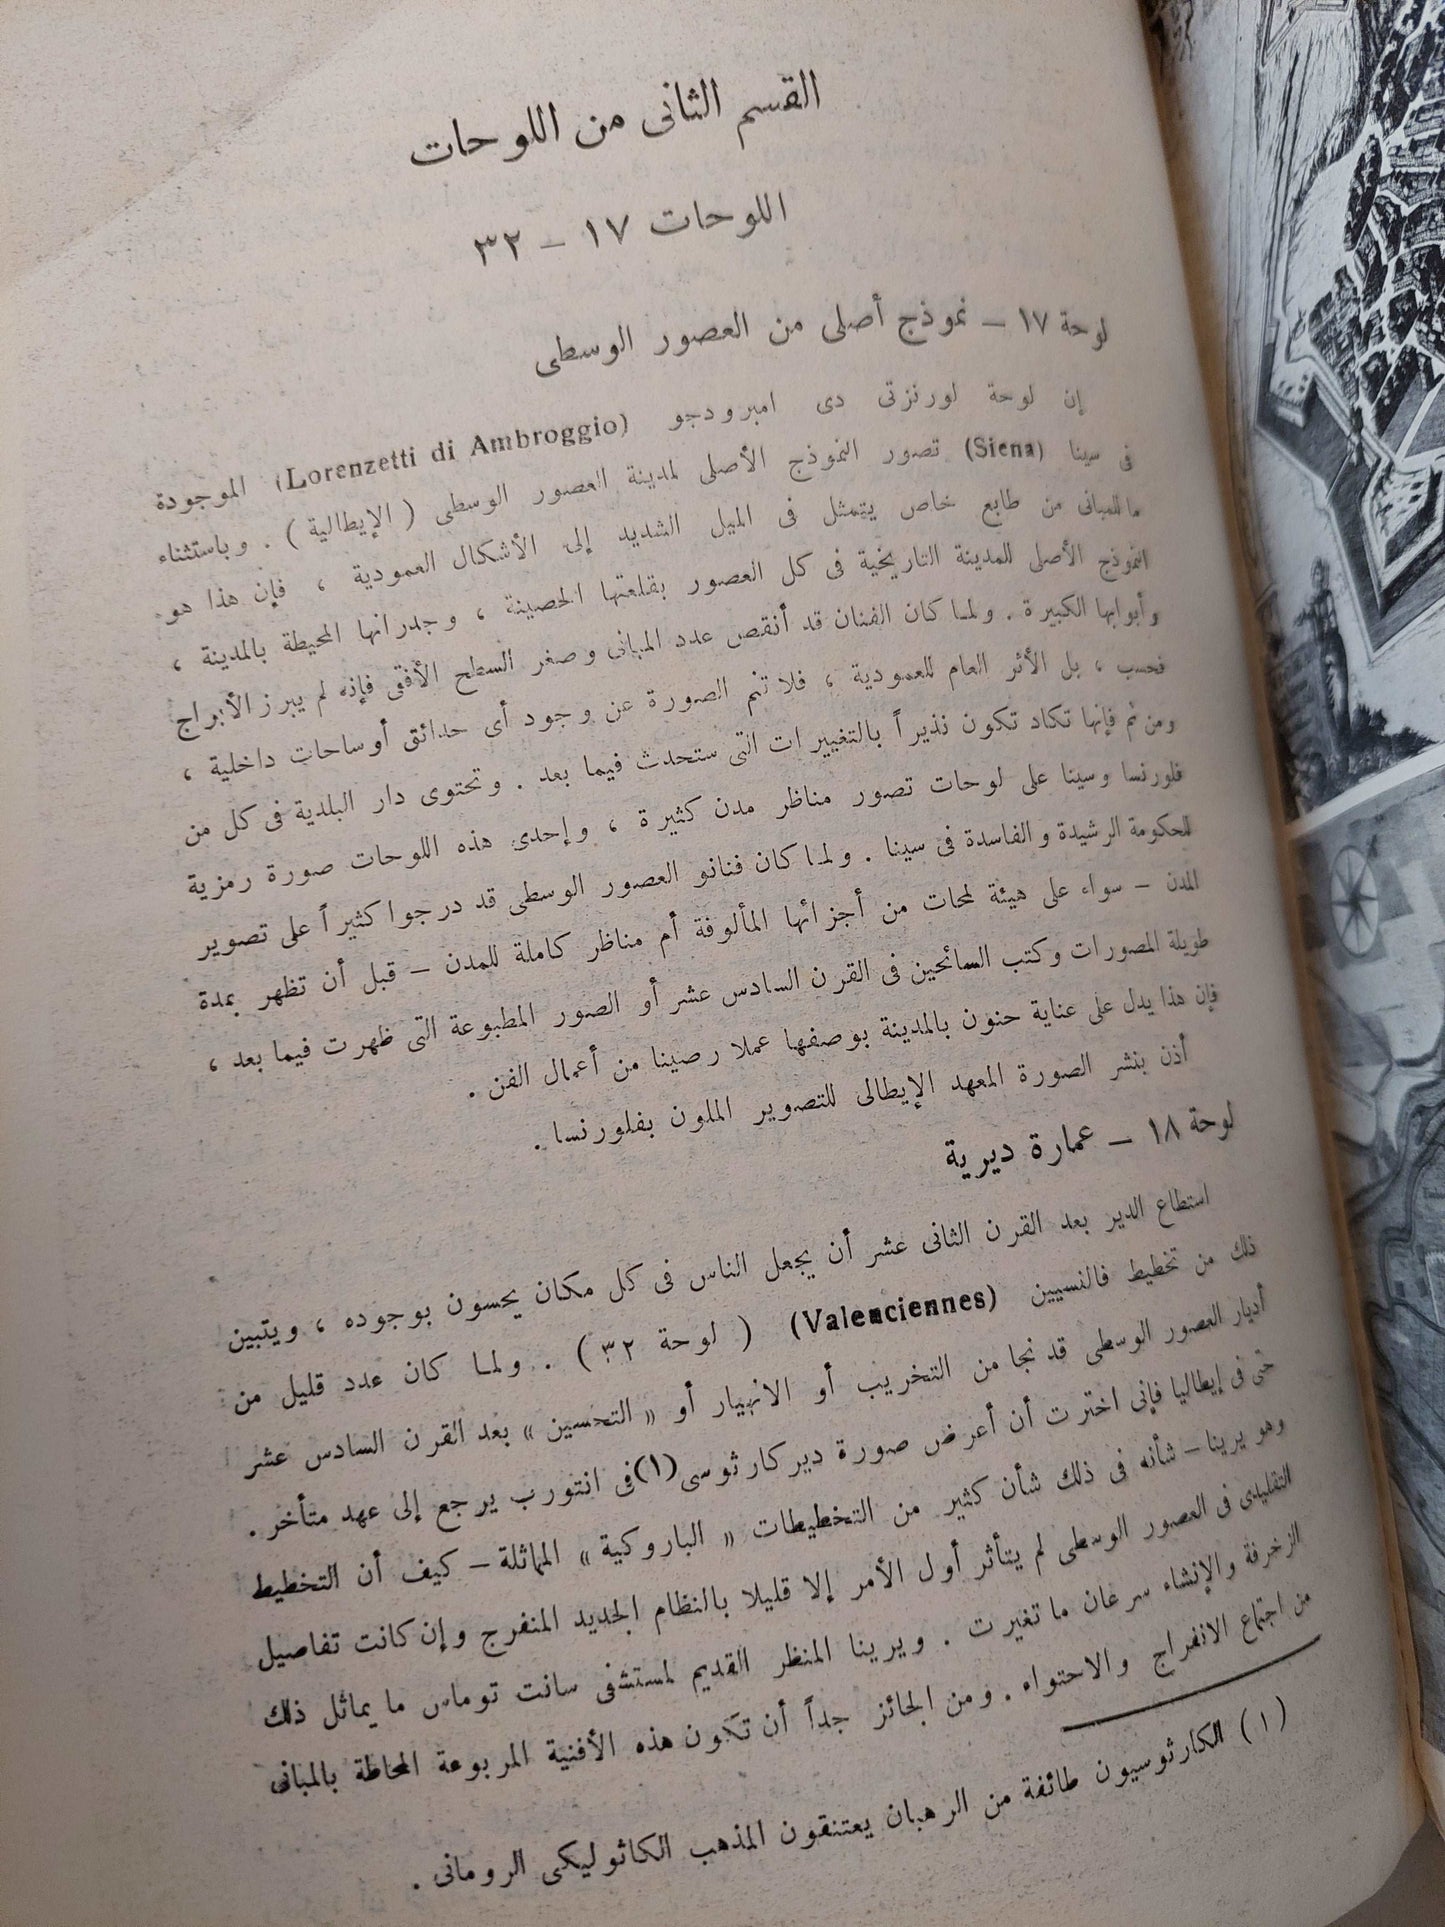 القسم الثانى من اللوحات
اللوحات ١٧ – ٣٢
لوحة ١٧ – نموذج أصلى من العصور الوسطى
إن لوحة لورنزتى دى امبرودجو (Lorenzetti di Ambroggio) الموجودة
فى سينا (Siena) تصور النموذج الأصلى لمدينة العصور الوسطى ( الإيطالية ) . وباستثناء
ما للمبانى من طابع خاص يتمثل فى الميل الشديد إلى الأشكال العمودية ، فإن هذا هو
النموذج الأصلى للمدينة التاريخية فى كل العصور بقلعتها الحصينة ، وجدرانها المحيطة بالمدينة ،
وأبوابها الكبيرة . ولما كان الفنان قد أنقص عدد المبانى وصغر السطح الأفقى فإنه لم يبرز الأبراج
فحسب ، بل الأثر العام للعمودية ، فلا تنم الصورة عن وجود أى حدائق أو ساحات داخلية ،
ومن ثم فإنها تكاد تكون نذيراً بالتغييرات التى ستحدث فيما بعد . وتحتوى دار البلدية فى كل من
فلورنسا وسينا على لوحات تصور مناظر مدن كثيرة ، وإحدى هذه اللوحات صورة رمزية
للحكومة الرشيدة والفاسدة فى سينا . ولما كان فنانو العصور الوسطى قد درجوا كثيراً على تصوير
المدن – سواء على هيئة لمحات من أجزائها المألوفة أم مناظر كاملة للمدن – قبل أن تظهر بمدة
طويلة المصورات وكتب السائحين فى القرن السادس عشر أو الصور المطبوعة التى ظهرت فيما بعد ،
فإن هذا يدل على عناية حنون بالمدينة بوصفها عملا رصينا من أعمال الفن .
أذن بنشر الصورة المعهد الإيطالى للتصوير الملون بفلورنسا .
لوحة ١٨ – عمارة ديرية
استطاع الدير بعد القرن الثانى عشر أن يجعل الناس فى كل مكان يحسون بوجوده ، ويتبين
ذلك من تخطيط فالنسيين (Valenciennes) ( لوحة ٣٢ ) . ولما كان عدد قليل من
أديار العصور الوسطى قد نجا من التخريب أو الانهيار أو « التحسين » بعد القرن السادس عشر
حتى فى إيطاليا فإنى اخترت أن أعرض صورة دير كارثوسى(١)فى انتورب يرجع إلى عهد متأخر .
وهو يرينا – شأنه فى ذلك شأن كثير من التخطيطات « الباروكية » المماثلة – كيف أن التخطيط
التقليدى فى العصور الوسطى لم يتأثر أول الأمر إلا قليلا بالنظام الجديد المنفرج وإن كانت تفاصيل
الزخرفة والإنشاء سرعان ما تغيرت . ويرينا المنظر القديم لمستشفى سانت توماس ما يماثل ذلك
من اجتماع الانفراج والاحتواء . ومن الجائز جداً أن تكون هذه الأفنية المربوعة المحاطة بالمبانى
(١) الكارثوسيون طائفة من الرهبان يعتنقون المذهب الكاثوليكى الرومانى .